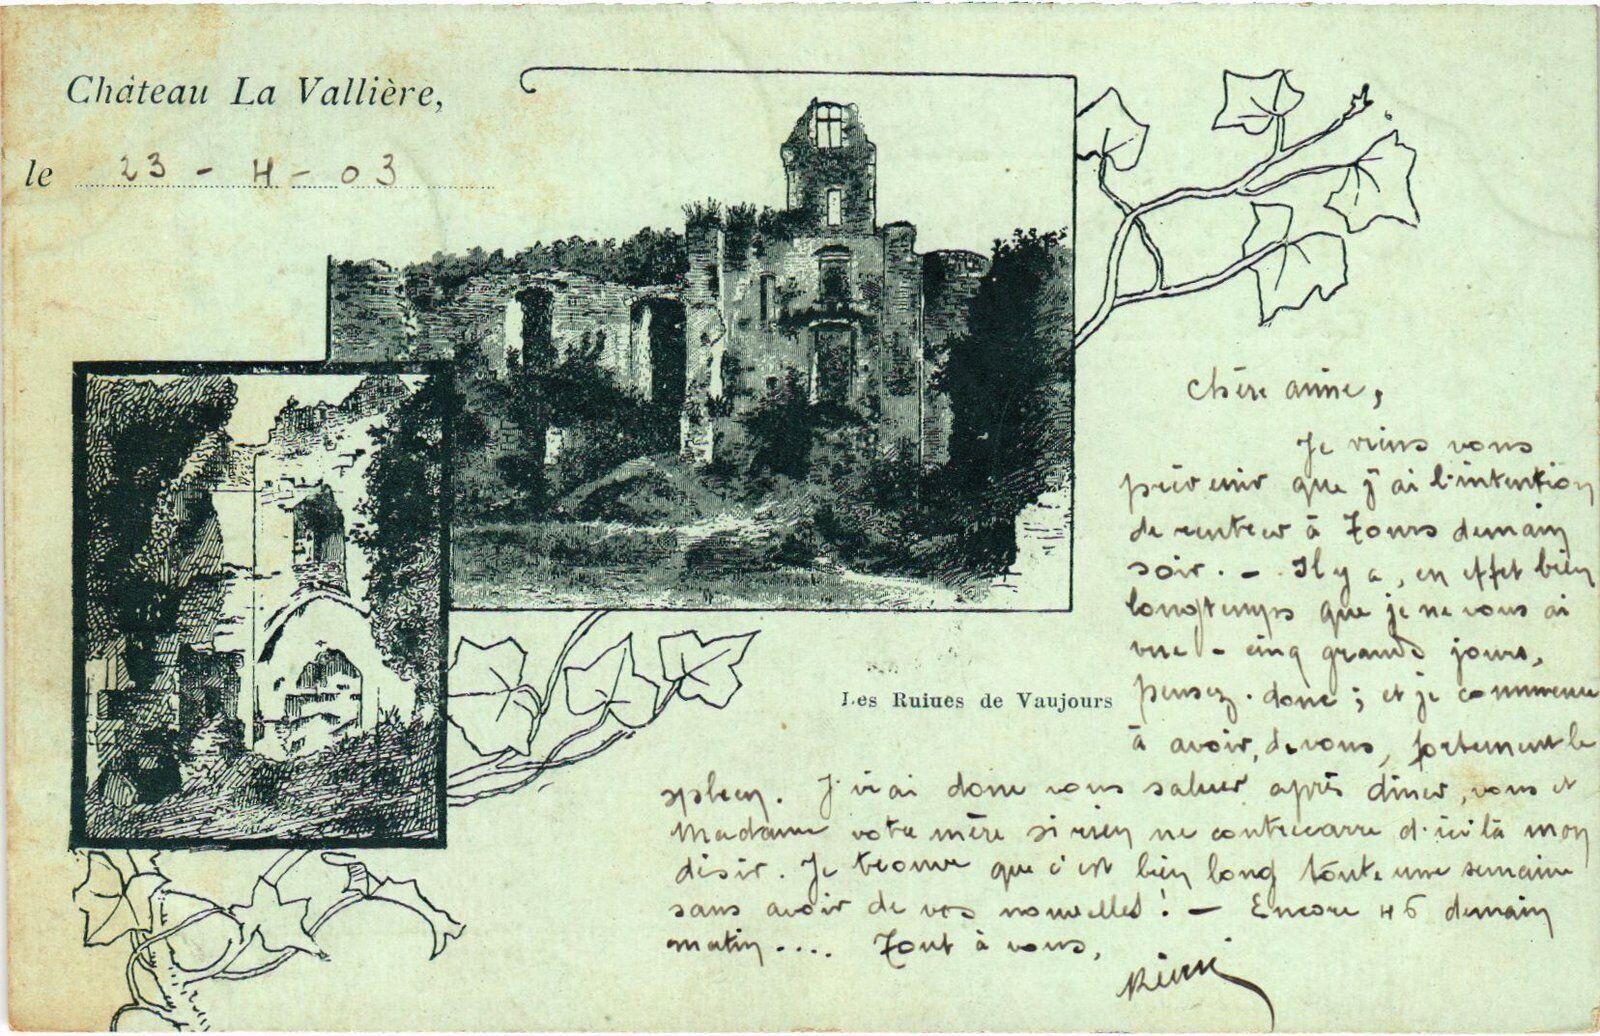 Château La Vallière,
le 23 - 4 - 03
Chère amie,
Je viens vous
prévenir que j'ai l'intention
de rentrer à Tours demain
soir. - Il y a, en effet bien
longtemps que je ne vous ai
vue - cinq grands jours,
Les Ruines de Vaujours
pensez-donc ; et je commence
à avoir, de vous, fortement le
spleen. J'irai donc vous saluer après dîner, vous et
Madame votre mère si rien ne contrecarre d'ici là mon
désir. Je trouve que c'est bien long toute une semaine
sans avoir de vos nouvelles ! - Encore 46 demain
matin .... Tout à vous,